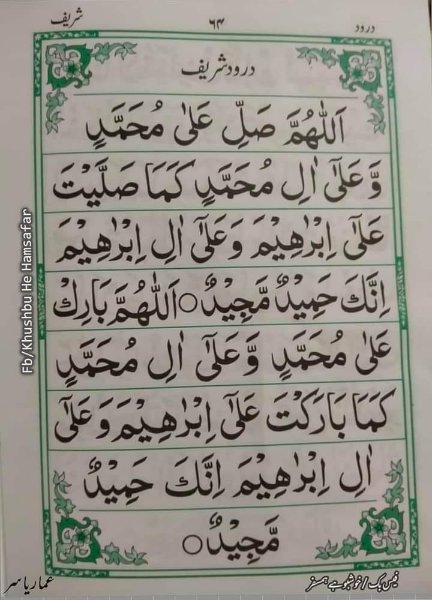 درود
۶۴
شریف
درود شریف
اَللّٰهُمَّ صَلِّ عَلٰی مُحَمَّدٍ
وَّ عَلٰٓی اٰلِ مُحَمَّدٍ کَمَا صَلَّیْتَ
عَلٰٓی اِبْرٰهِیْمَ وَ عَلٰٓی اٰلِ اِبْرٰهِیْمَ
اِنَّكَ حَمِیْدٌ مَّجِیْدٌ○ اَللّٰهُمَّ بَارِكْ
عَلٰی مُحَمَّدٍ وَّ عَلٰٓی اٰلِ مُحَمَّدٍ
کَمَا بَارَكْتَ عَلٰٓی اِبْرٰهِیْمَ وَ عَلٰٓی
اٰلِ اِبْرٰهِیْمَ اِنَّكَ حَمِیْدٌ
مَّجِیْدٌ○
Fb/Khushbu He Hamsafar
فیس بک / خوشبو ہے ہمسفر
عمار یاسر